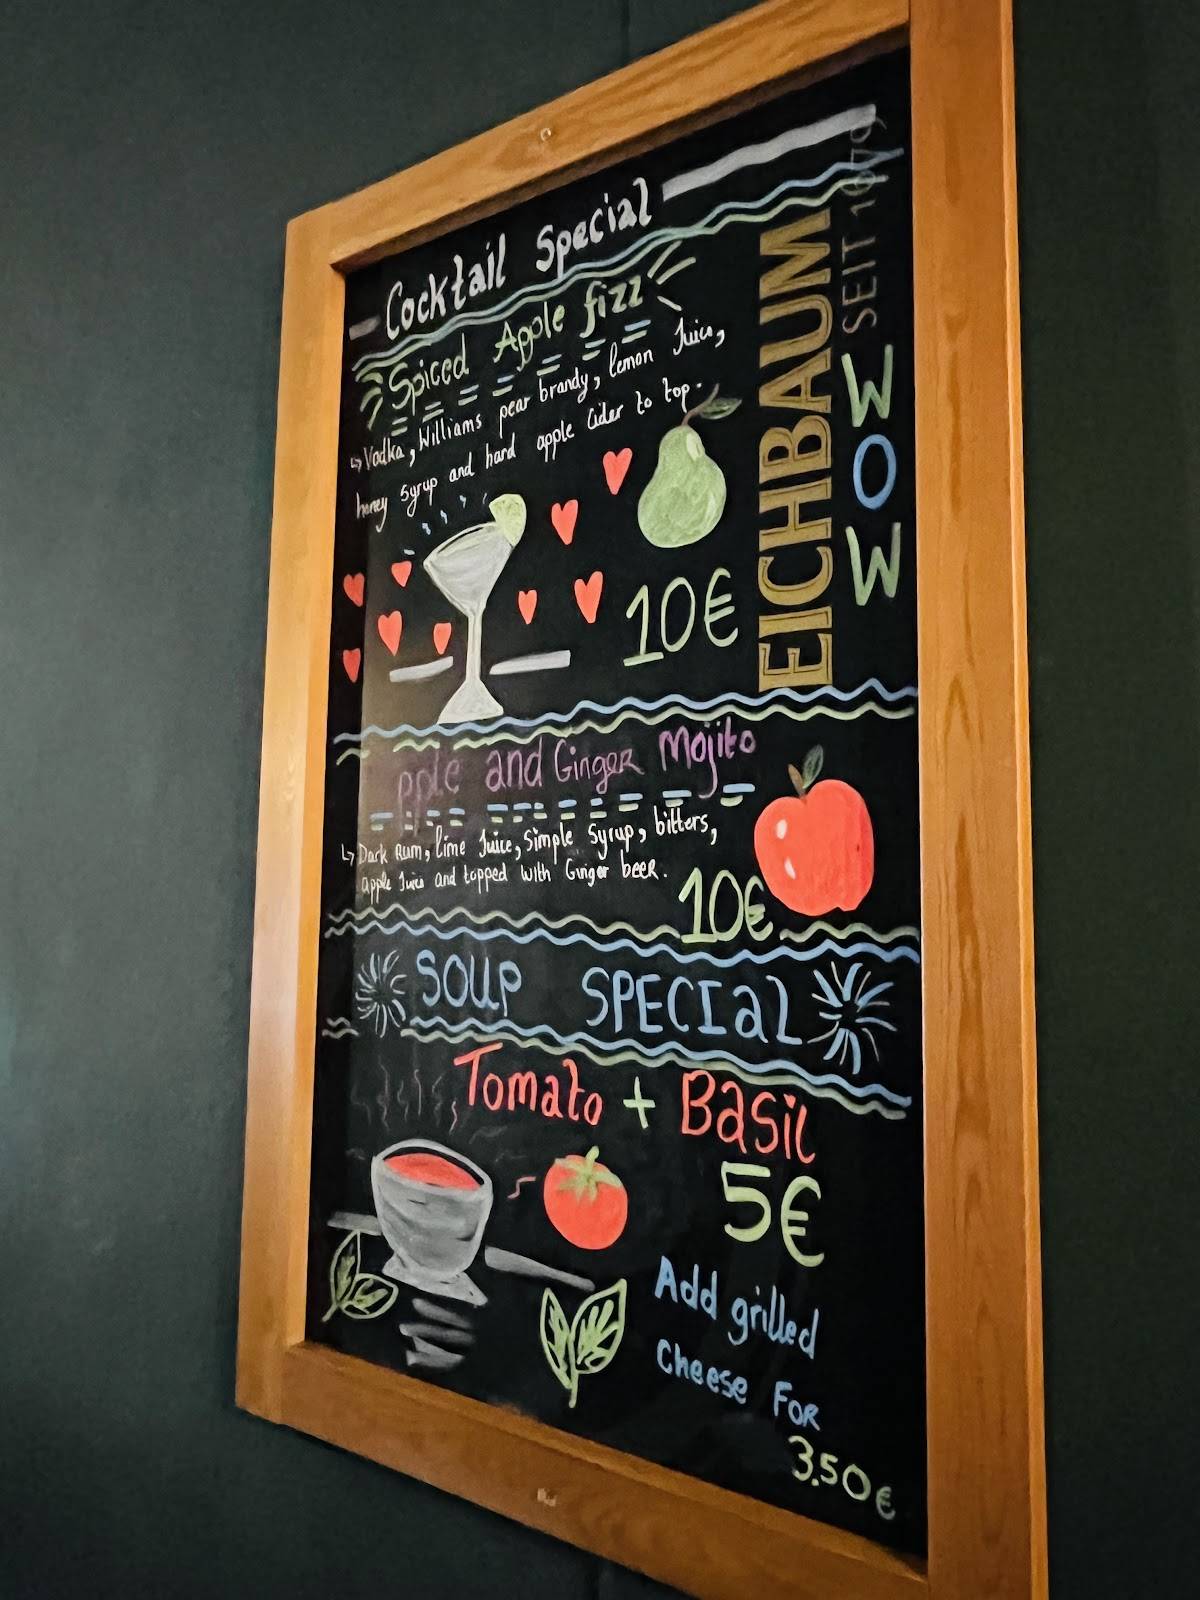 Cocktail Special
Spiced Apple fizz
Vodka, Williams pear brandy, lemon Juice,
honey syrup and hard apple Cider to top.
10€
EICHBAUM
SEIT 1679
WOW
pple and Ginger Mojito
Dark Rum, lime Juice, Simple Syrup, bitters,
apple Juice and topped with Ginger beer.
10€
SOUP SPECIaL
Tomato + Basil
5€
Add grilled
Cheese FOR
3.50€